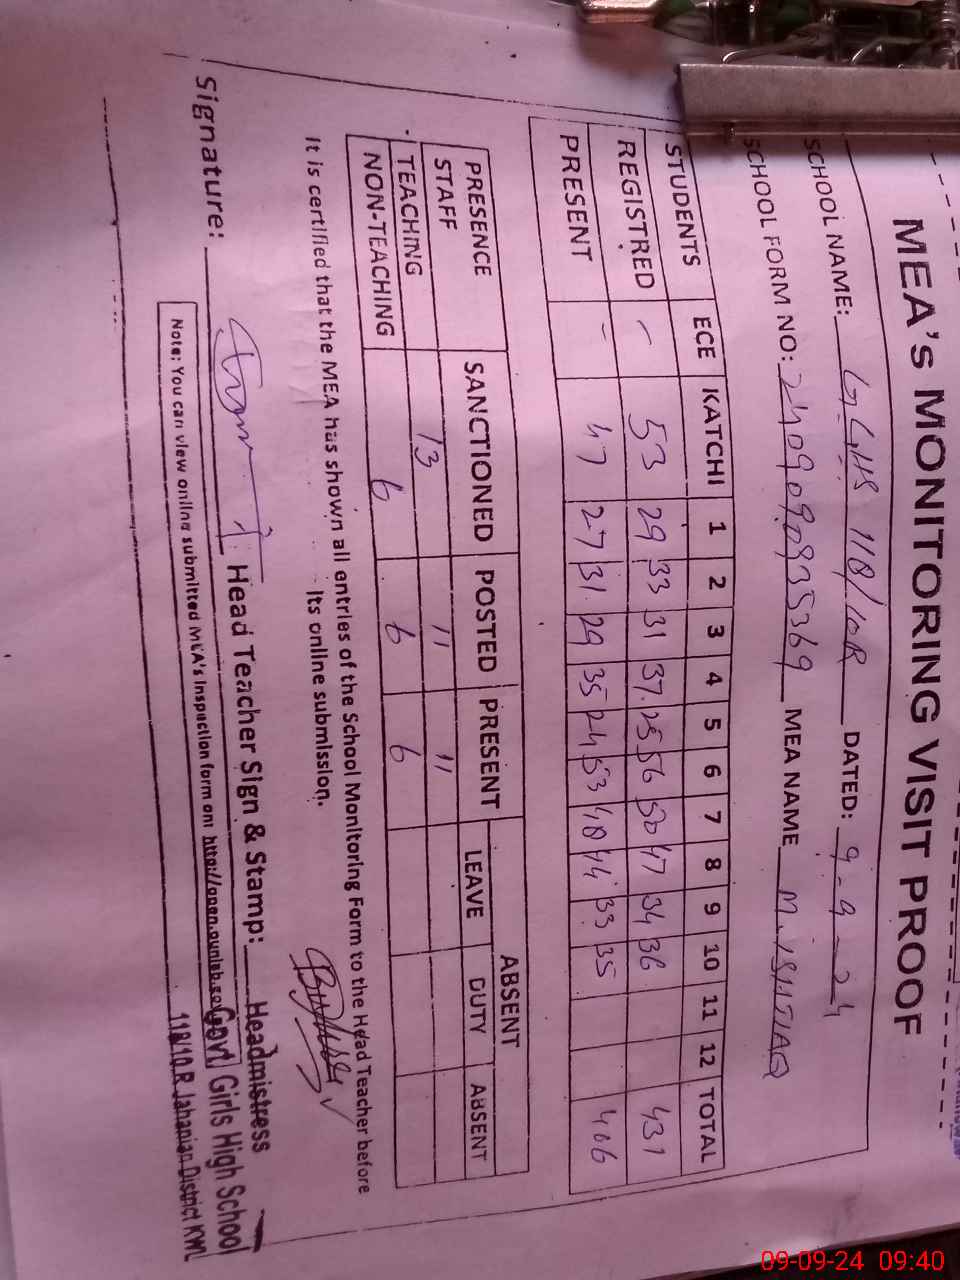 MEA's MONITORING VISIT PROOF
SCHOOL NAME: G.GHS 118/10R DATED: 9-9-24
SCHOOL FORM NO: 24090909835369 MEA NAME M. ISHTIAQ
STUDENTS ECE KATCHI 1 2 3 4 5 6 7 8 9 10 11 12 TOTAL
REGISTRED - 53 29 33 31 37 25 56 50 47 34 36 431
PRESENT - 47 27 31 29 35 24 53 48 44 33 35 406
PRESENCE SANCTIONED POSTED PRESENT ABSENT
STAFF LEAVE DUTY ABSENT
TEACHING 13 11 11
NON-TEACHING 6 6 6
It is certified that the MEA has shown all entries of the School Monitoring Form to the Head Teacher before
its online submission.
Signature: Head Teacher Sign & Stamp: Headmistress
Note: You can view online submitted MEA's Inspection form on: http://open.punjab.gov Govt Girls High School
118/10.R Jahanian District KWL
09-09-24 09:40